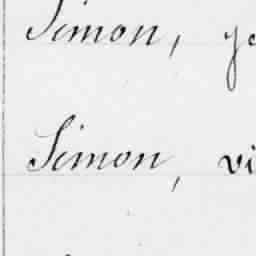 Simon,
Simon, vi